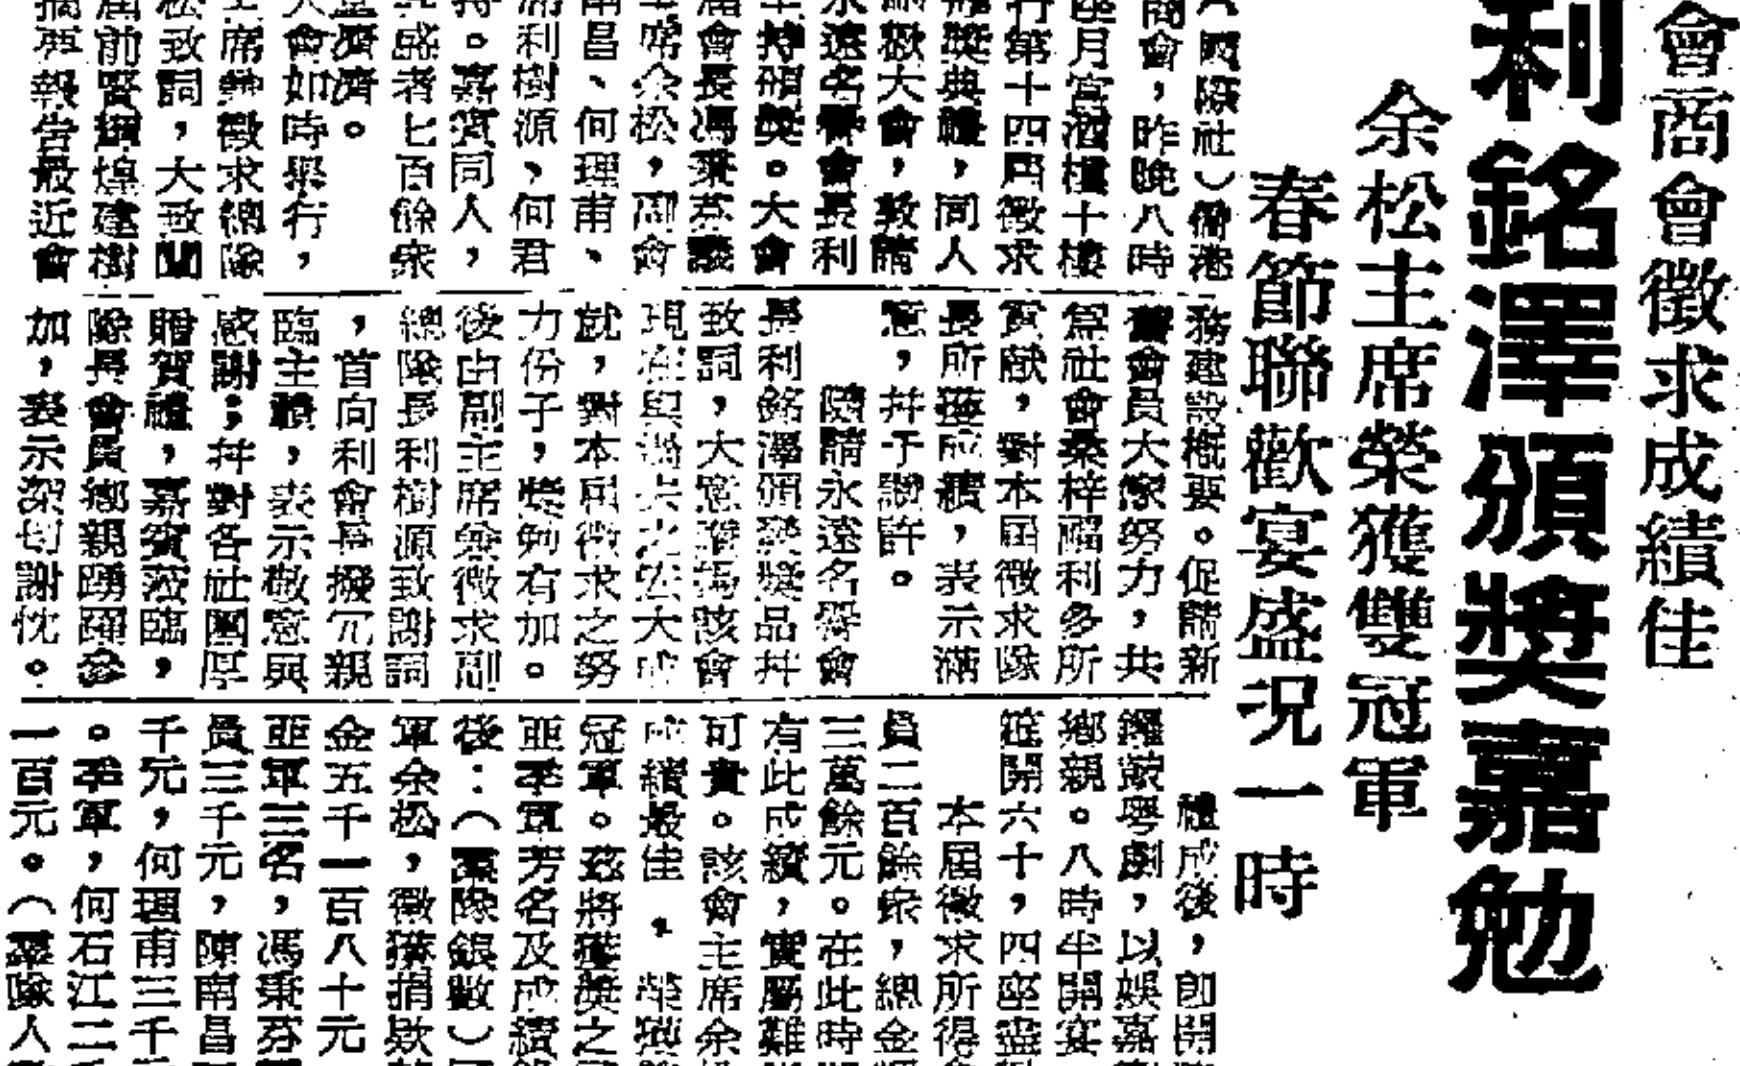 會商會徵求成績佳
利銘澤頒獎嘉勉
余松主席榮獲雙冠軍
春節聯歡宴盛況一時
（國際社）僑港
商會，昨晚八時
座月宮酒樓十樓
行第十四屆徵求
頒獎典禮，同人
大會，敦請
永遠名譽會長利
主持頒獎。大會
屆會長馮秉芬議
主席余松，副會
南昌、何理甫、
利樹源、何君
持。嘉賓同人，
盛者七百餘衆
濟濟。
大會如時舉行，
主席兼徵求總隊
松致詞，大致闡
屆前賢輝煌建樹
摘要報告最近會
務建設概要。促請新
舊會員大家努力，共
為社會桑梓福利多所
貢献，對本屆徵求隊
長所獲成績，表示滿
意，幷予嘉許。
隨請永遠名譽會
長利銘澤頒發獎品幷
致詞，大意讚揚該會
現在與過去之宏大成
就，對本屆徵求之努
力份子，獎勉有加。
後由副主席兼徵求副
總隊長利樹源致謝詞
，首向利會長撥冗親
臨主禮，表示敬意與
感謝；幷對各社團厚
贈賀禮，嘉賓蒞臨，
隊長會員鄉親踴躍參
加，表示深切謝忱。
禮成後，卽開
鑼鼓粵劇，以娛嘉
鄉親。八時半開宴
筵開六十，四座盡
本屆徵求所得
員二百餘衆，總金
三萬餘元。在此時
有此成績，實屬難
可貴。該會主席余
成績最佳，榮獲
冠軍。茲將獲獎之
亞季軍芳名及成績
後：（團隊銀數）
軍余松，徵獲捐欵
金五千一百八十元
亞軍三名，馮秉芬
員三千元，陳南昌
千元，何理甫三千
。季軍，何石江二
一百元。（團隊人